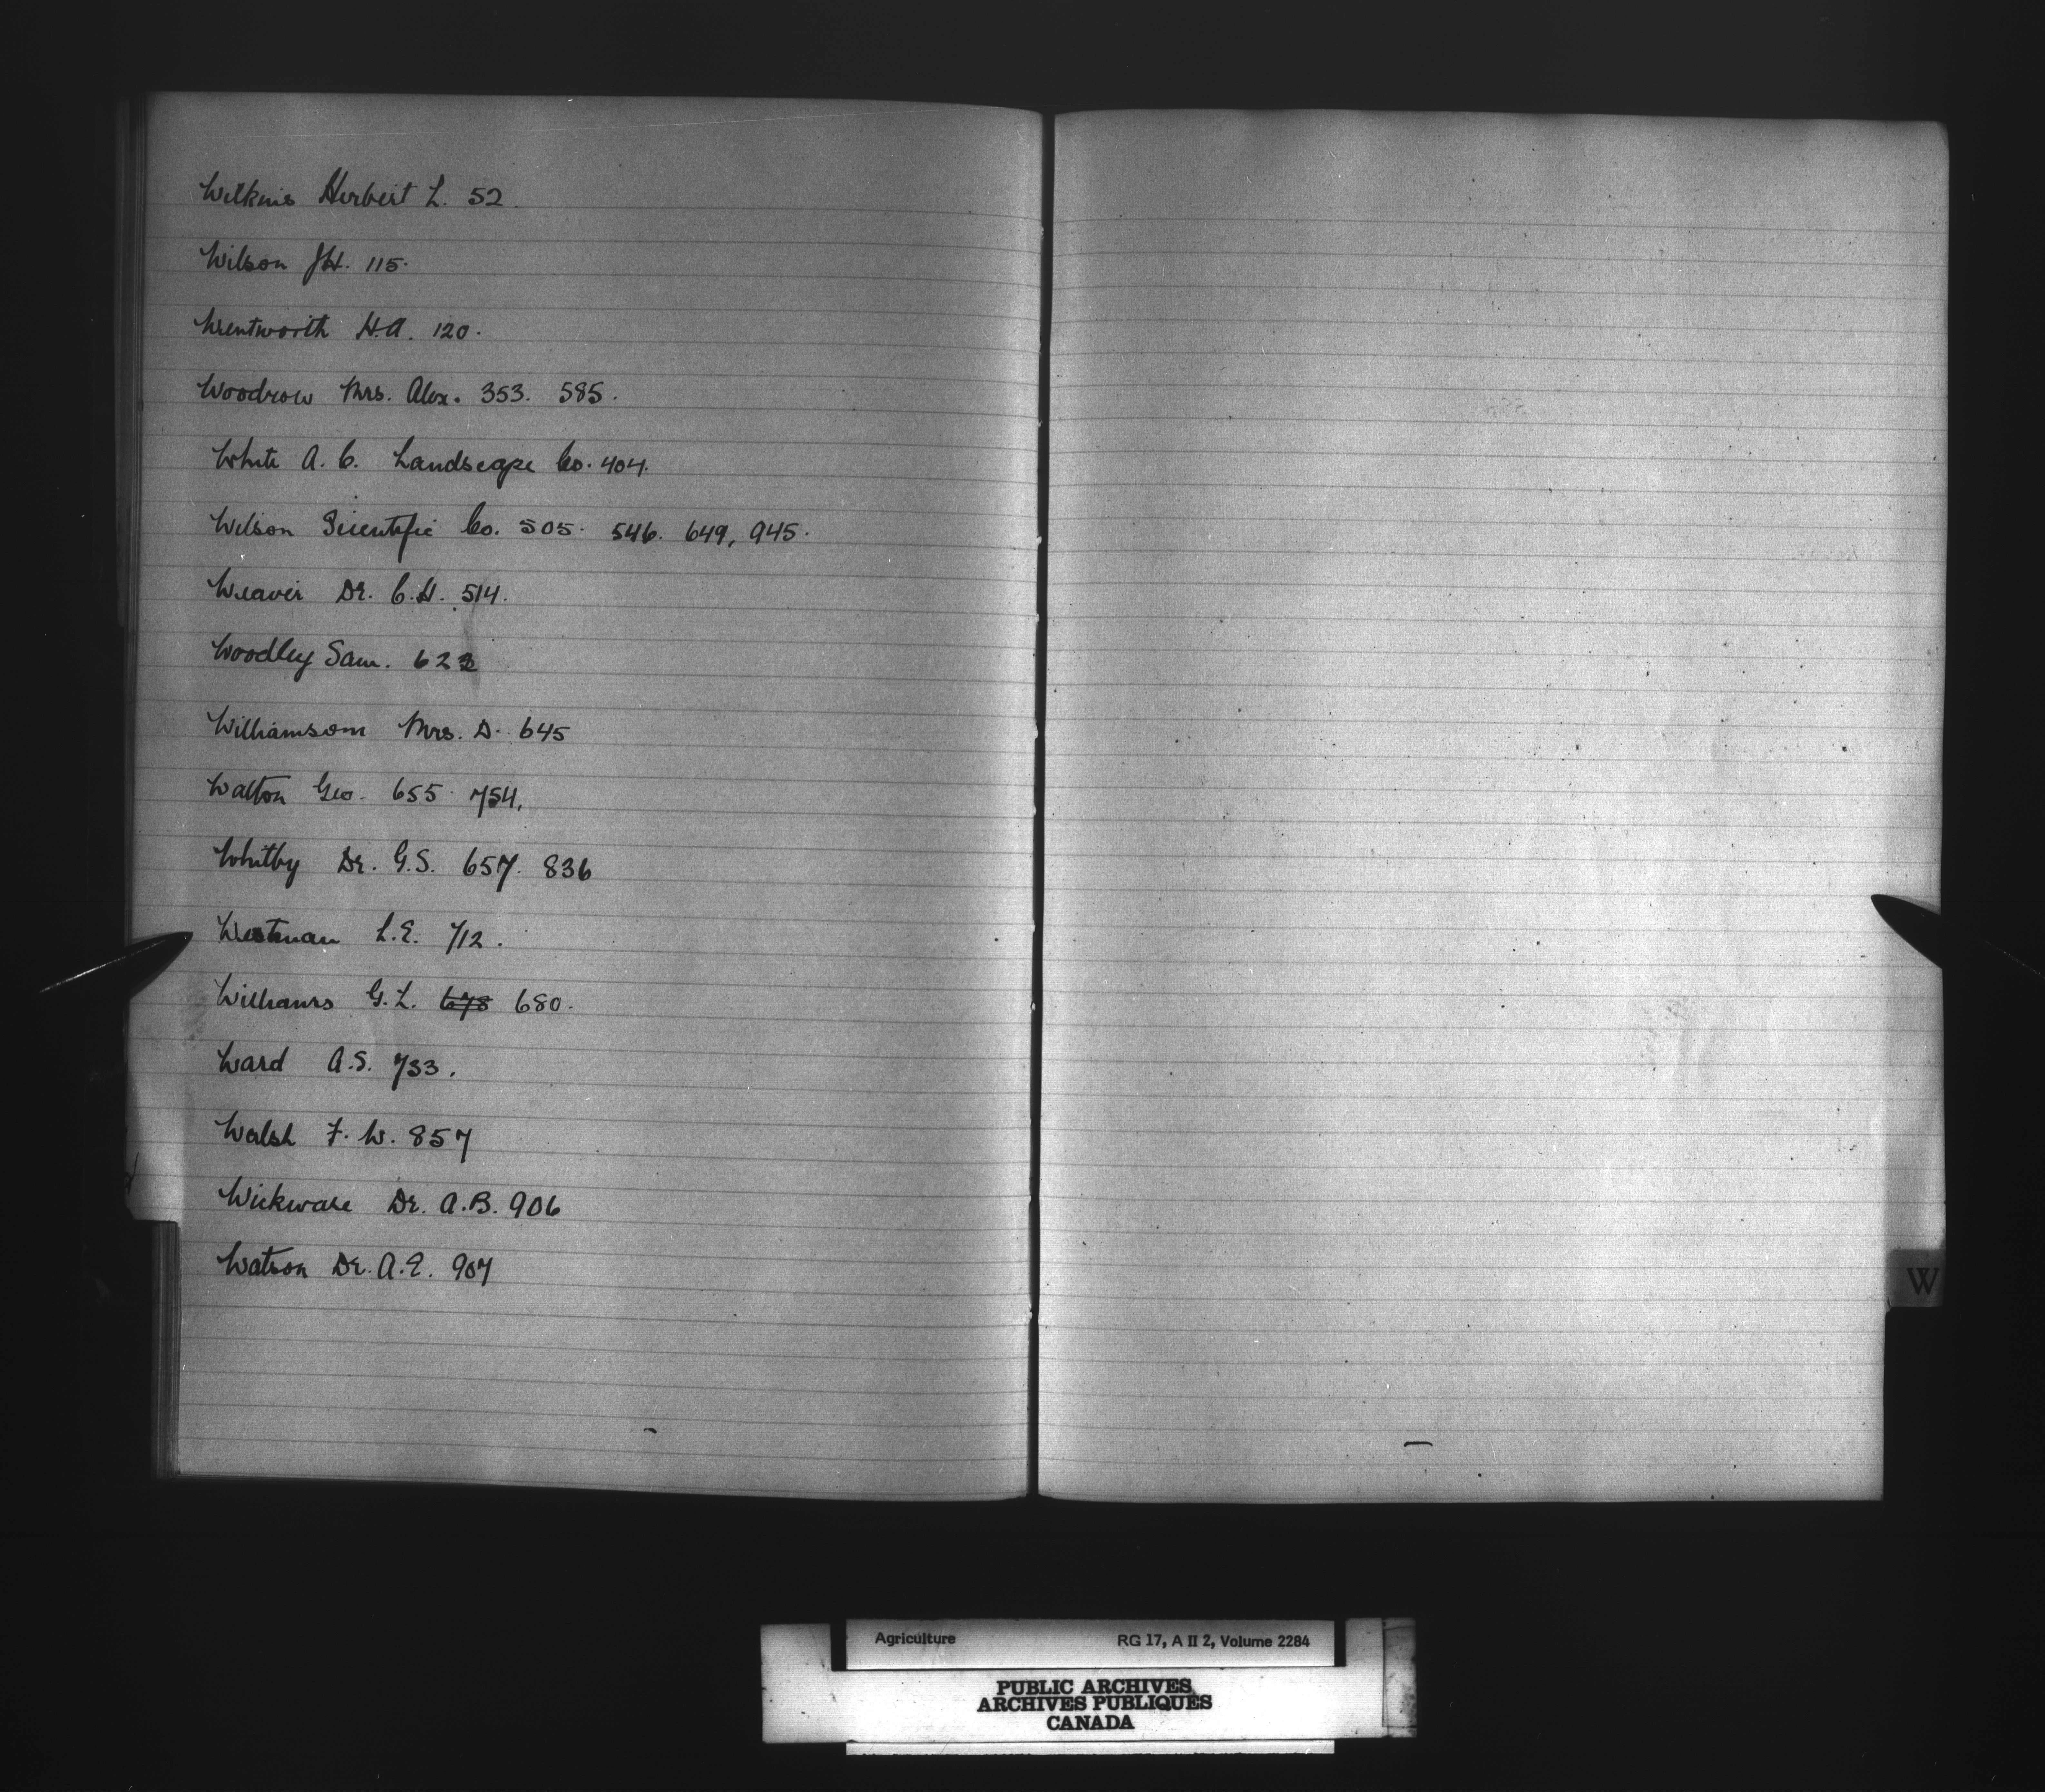 Wilkins Herbert L. 52.
Wilson J.H. 115.
Wentworth H.A. 120.
Woodrow Mrs. Alex. 353. 585.
White A. C. Landscape Co. 404.
Wilson Scientific Co. 505. 546. 649, 945.
Weaver Dr. C.H. 514.
Woodley Sam. 622
Williamson Mrs. D. 645
Walton Geo. 655. 754.
Whitby Dr. G.S. 657. 836
Westman L.E. 712.
Williams G.L. 678 680.
Ward A.S. 733.
Walsh F. W. 857
Wickware Dr. A.B. 906
Watson Dr. A.E. 907
W
Agriculture RG 17, A II 2, Volume 2284
PUBLIC ARCHIVES
ARCHIVES PUBLIQUES
CANADA